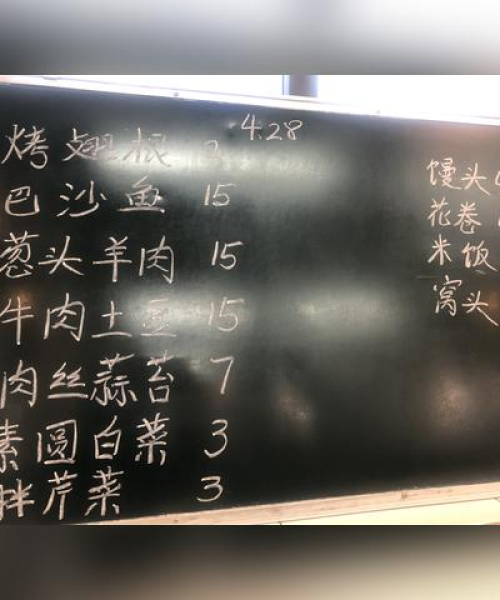 4.28
烤翅根 2
巴沙鱼 15
葱头羊肉 15
牛肉土豆 15
肉丝蒜苔 7
素圆白菜 3
拌芹菜 3
馒头
花卷
米饭
窝头